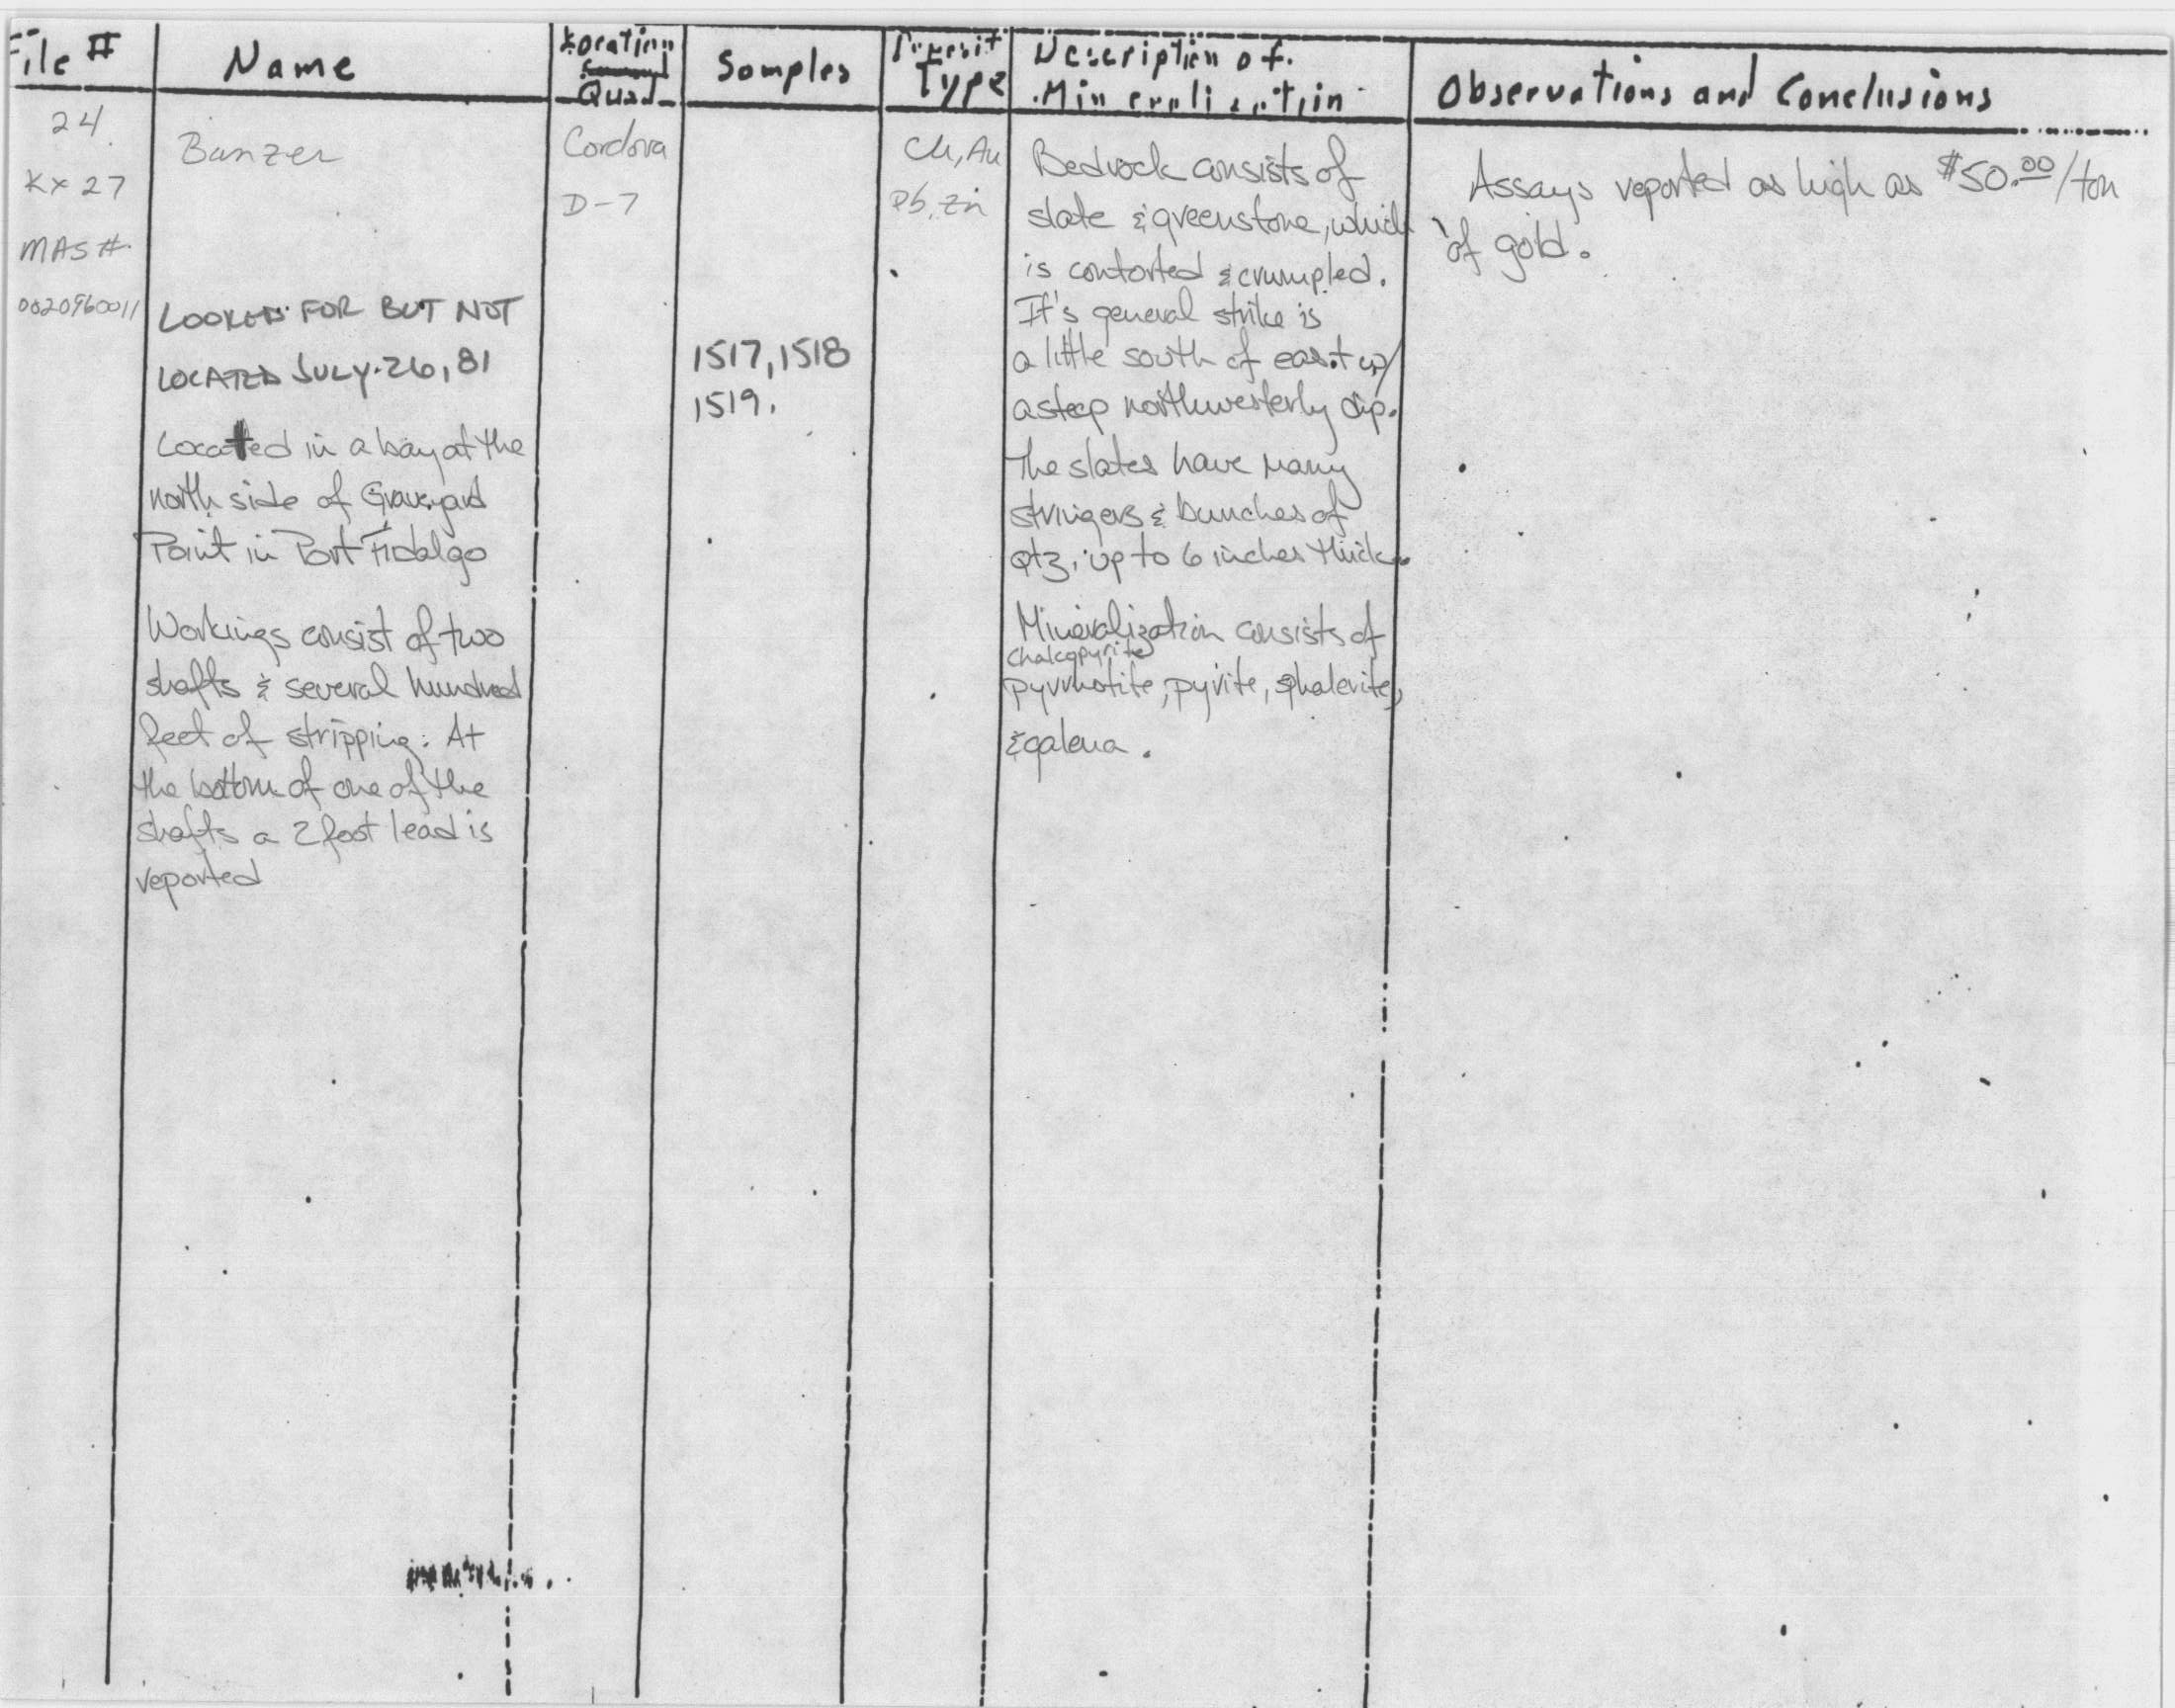 File #
Name
Location
Quad
Samples
Deposit
Type
Description of
Mineralization
Observations and Conclusions
24
Kx 27
MAS #
0020960011
Banzer
LOOKED FOR BUT NOT
LOCATED JULY 26, 81
Located in a bay at the
north side of Graveyard
Point in Port Fidalgo
Workings consist of two
shafts & several hundred
feet of stripping. At
the bottom of one of the
shafts a 2 foot lead is
reported
Cordova
D-7
1517, 1518
1519.
Cu, Au
Pb, Zn
Bedrock consists of
slate & greenstone, which
is contorted & crumpled.
It's general strike is
a little south of east w/
a steep northwesterly dip.
The slates have many
stringers & bunches of
qtz, up to 6 inches thick.
Mineralization consists of
chalcopyrite
pyrrhotite, pyrite, sphalerite,
& galena.
Assays reported as high as $50.00/ton
of gold.